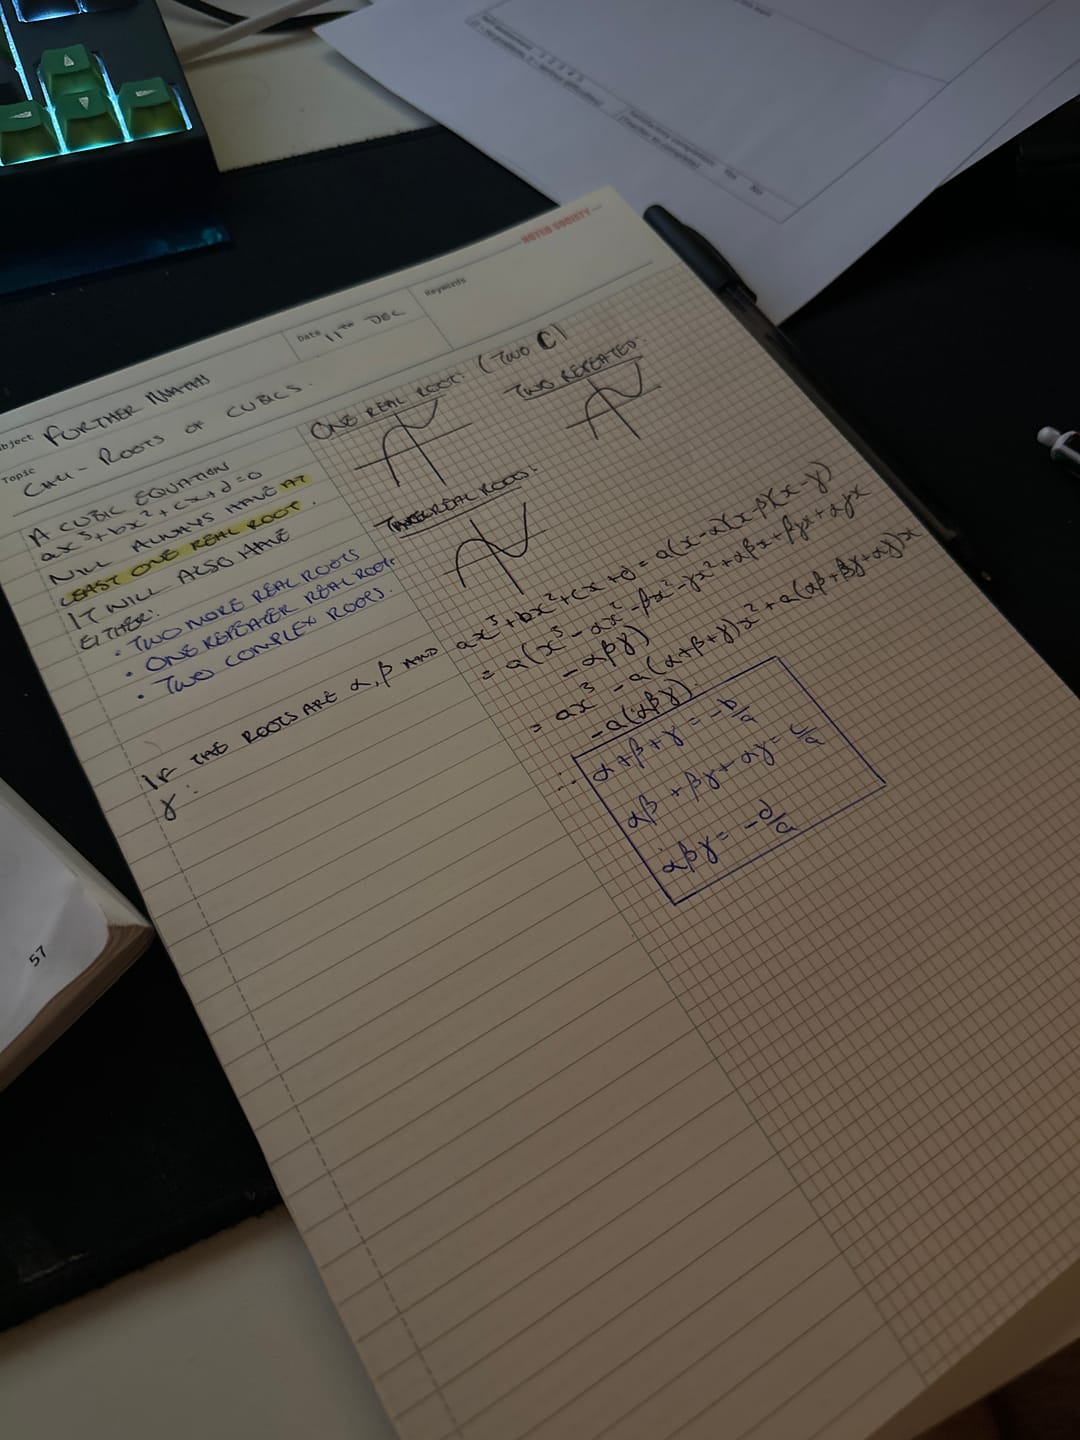 NOTED SOCIETY
Subject FURTHER MATHS
Date 11TH DEC
Keywords
Topic CH4 - ROOTS OF CUBICS.
A CUBIC EQUATION
ax³+bx²+cx+d=0
WILL ALWAYS HAVE AT
LEAST ONE REAL ROOT.
IT WILL ALSO HAVE
EITHER:
• TWO MORE REAL ROOTS
• ONE REPEATED REAL ROOT.
• TWO COMPLEX ROOTS.
IF THE ROOTS ARE α, β AND
γ:
ONE REAL ROOT (TWO C)
TWO REPEATED:
THREE REAL ROOTS:
ax³+bx²+cx+d = a(x-α)(x-β)(x-γ)
= a(x³-αx²-βx²-γx²+αβx+βγx+αγx
-αβγ)
= ax³-a(α+β+γ)x²+a(αβ+βγ+αγ)x
-a(αβγ).
∴ α+β+γ = -b/a
αβ+βγ+αγ = c/a
αβγ = -d/a
57